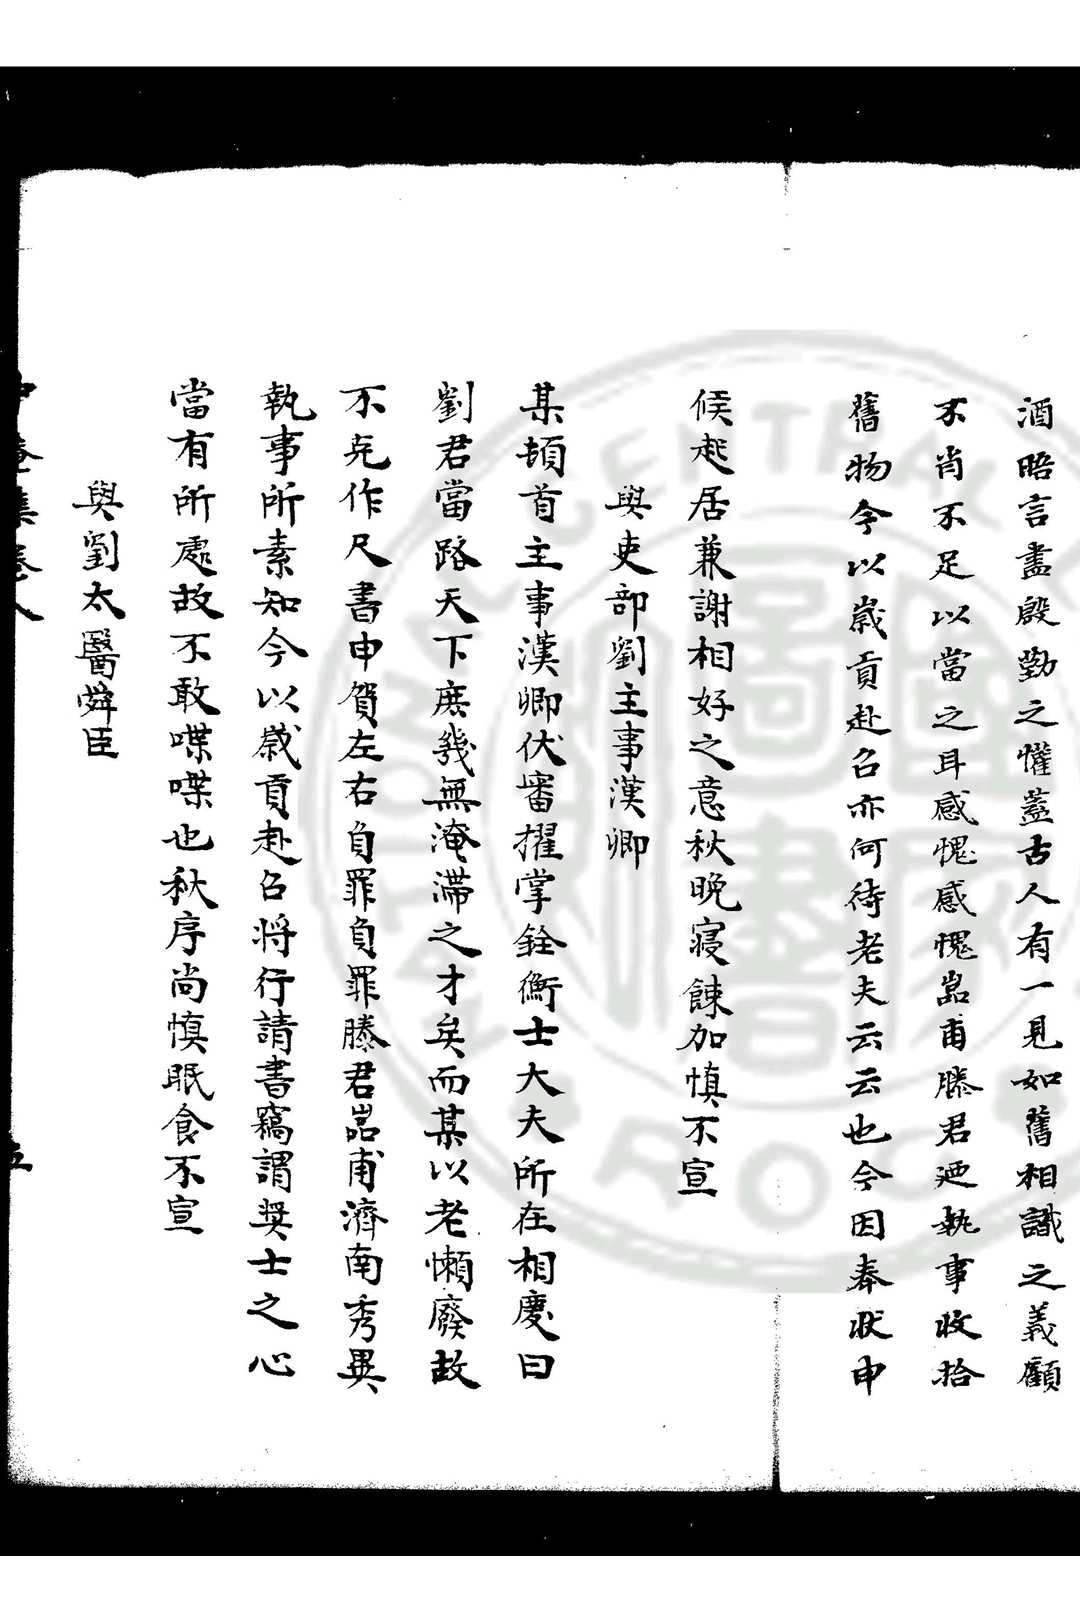 酒晤言盡殷勤之懽蓋古人有一見如舊相識之義顧
不肖不足以當之耳感愧感愧嵓甫滕君廼執事收拾
舊物今以歲貢赴召亦何待老夫云云也今因奉狀申
候起居兼謝相好之意秋晚寢餗加慎不宣
與吏部劉主事漢卿
某頓首主事漢卿伏審擢掌銓衡士大夫所在相慶曰
劉君當路天下庶幾無淹滯之才矣而某以老懶廢故
不克作尺書申賀左右負罪負罪滕君嵓甫濟南秀異
執事所素知今以歲貢赴召將行請書竊謂奬士之心
當有所處故不敢喋喋也秋序尚慎眠食不宣
與劉太醫舜臣
中庵集卷八
五
NATIONAL CENTRAL LIBRARY
ROC
國家圖書